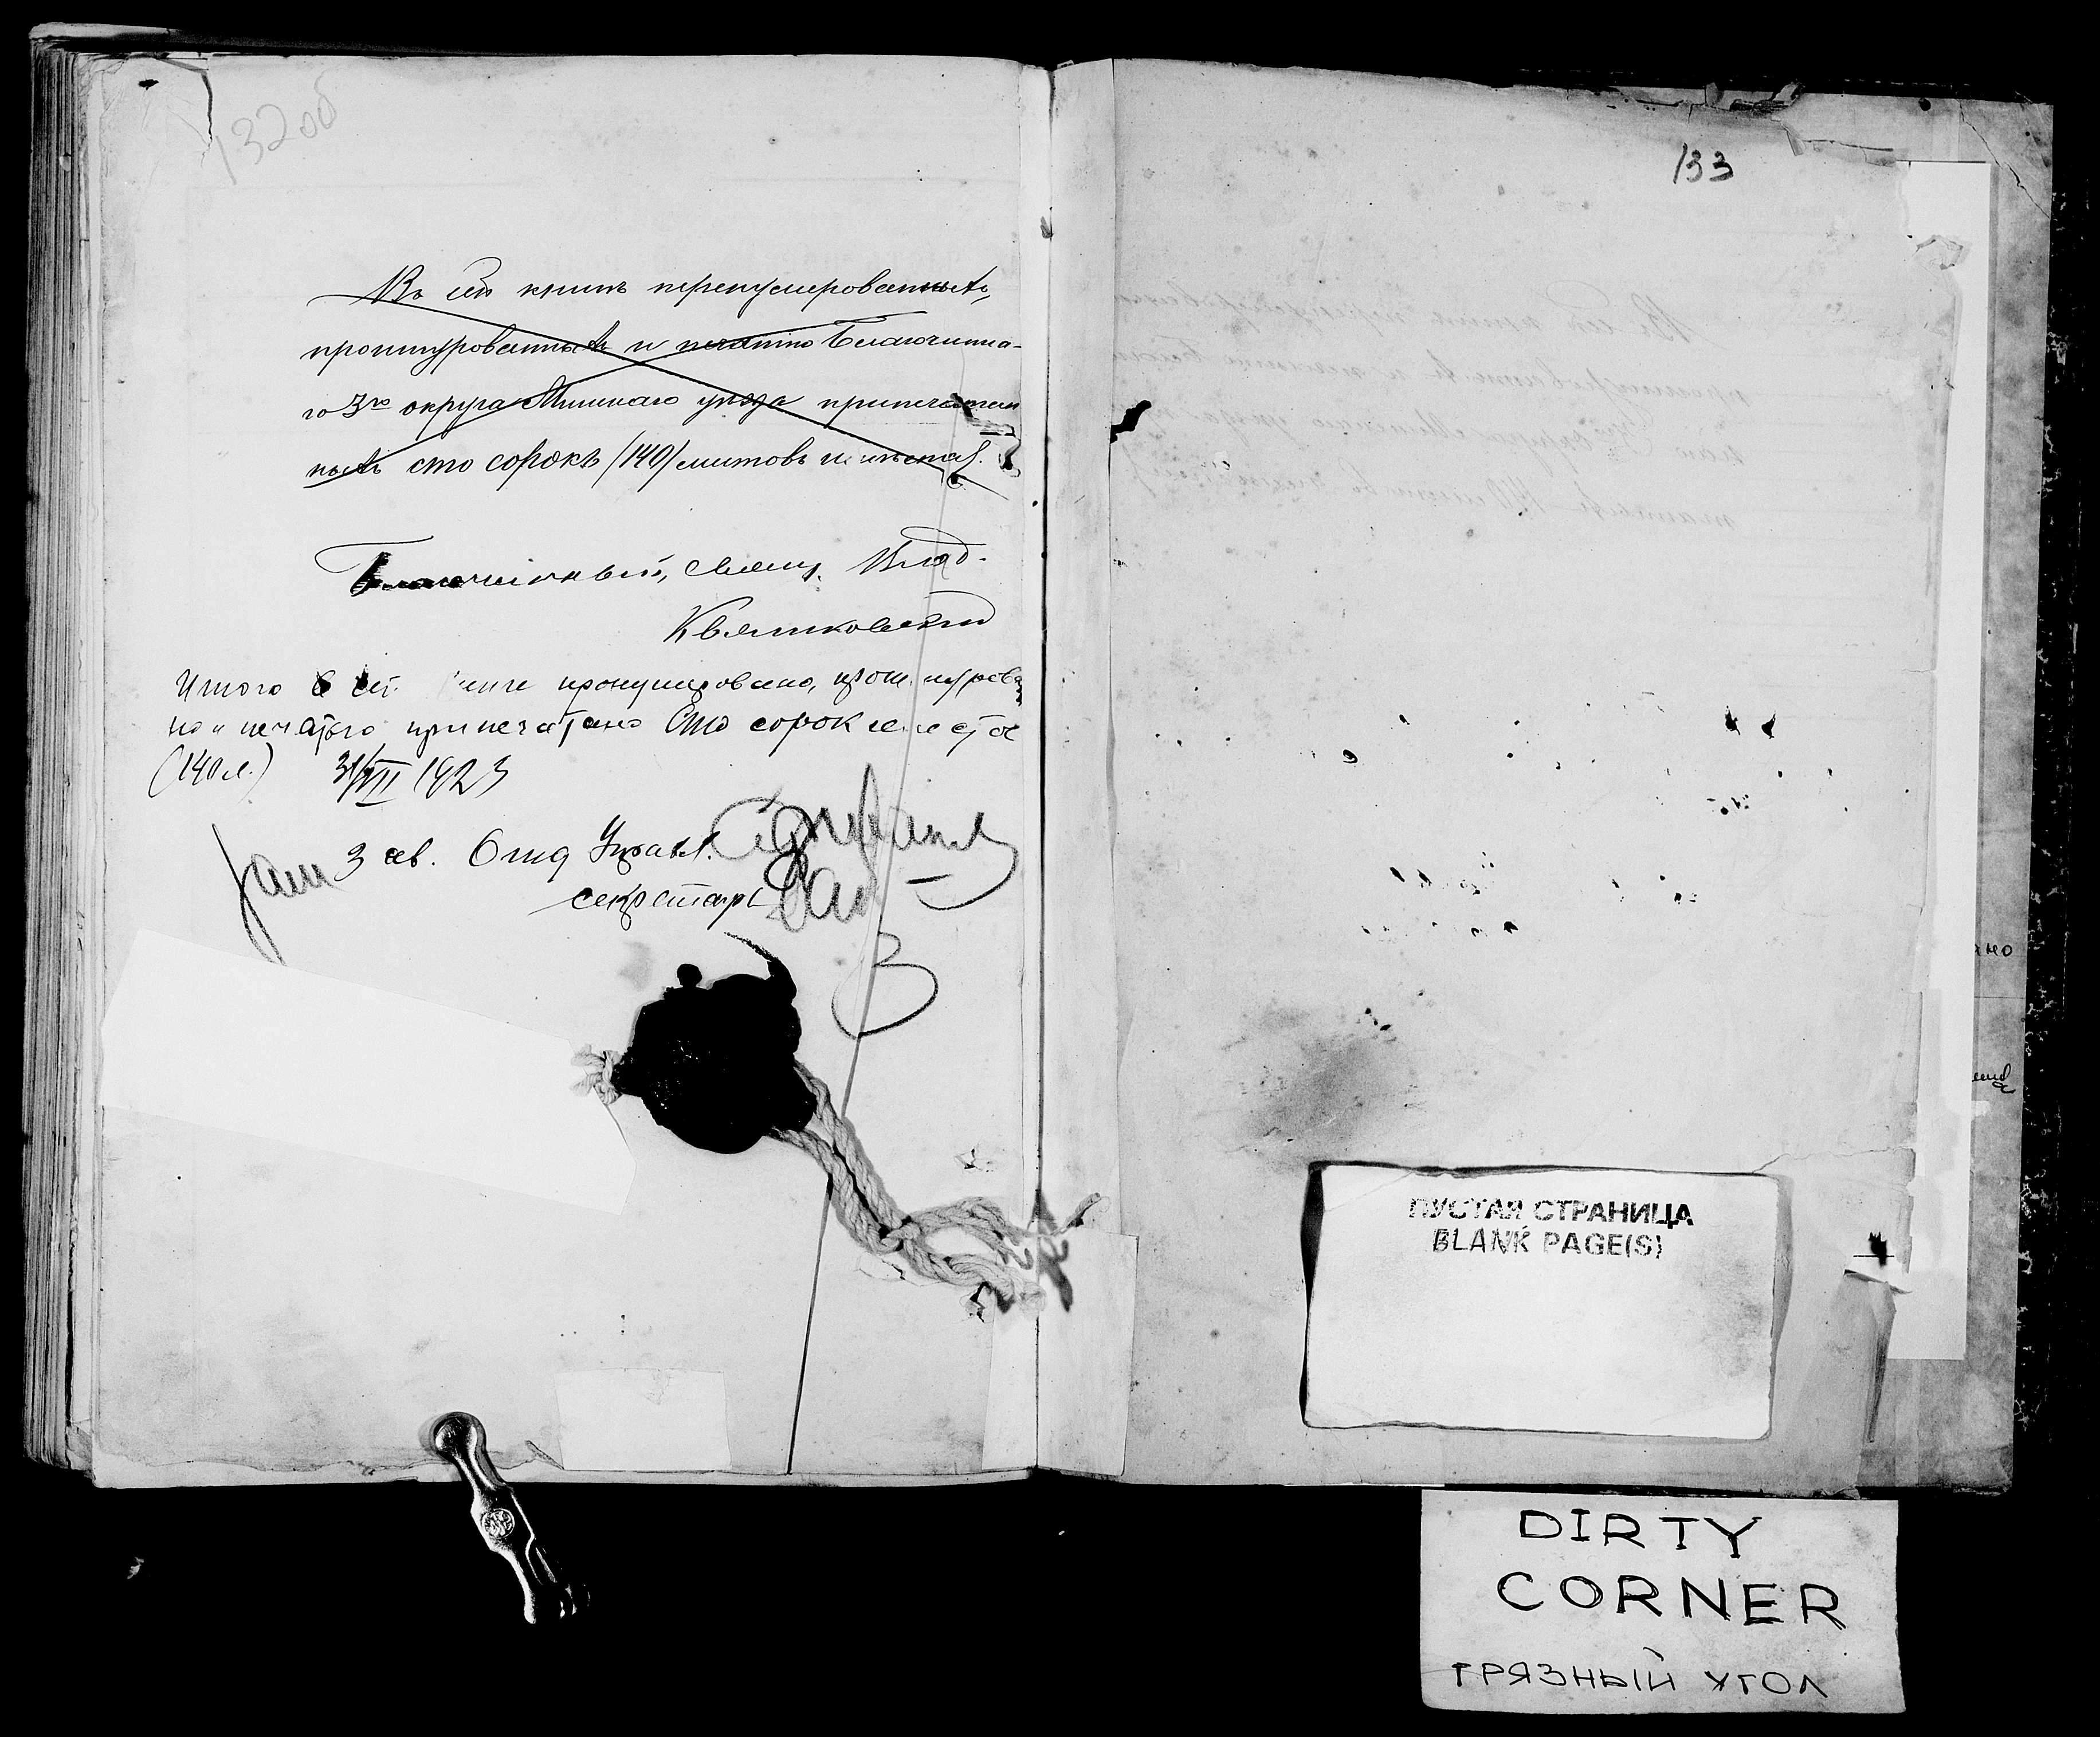 132 об
Въ сей книгѣ перенумерованныхъ,
прошнурованныхъ и печатью Благочинна-
го 3го округа Минскаго уѣзда припечатан
ныхъ сто сорокъ (140) листовъ
Благочинный, Свящ. Влад.
Квятковский
Итого в сей книге пронумеровано, прошнурова
но и печатью припечатано Сто сорок листов
(140 л.) 31/VII 1923
Зав. Отд Управл.
секретарь
133
ПУСТАЯ СТРАНИЦА
BLANK PAGE(S)
DIRTY
CORNER
ГРЯЗНЫЙ УГОЛ